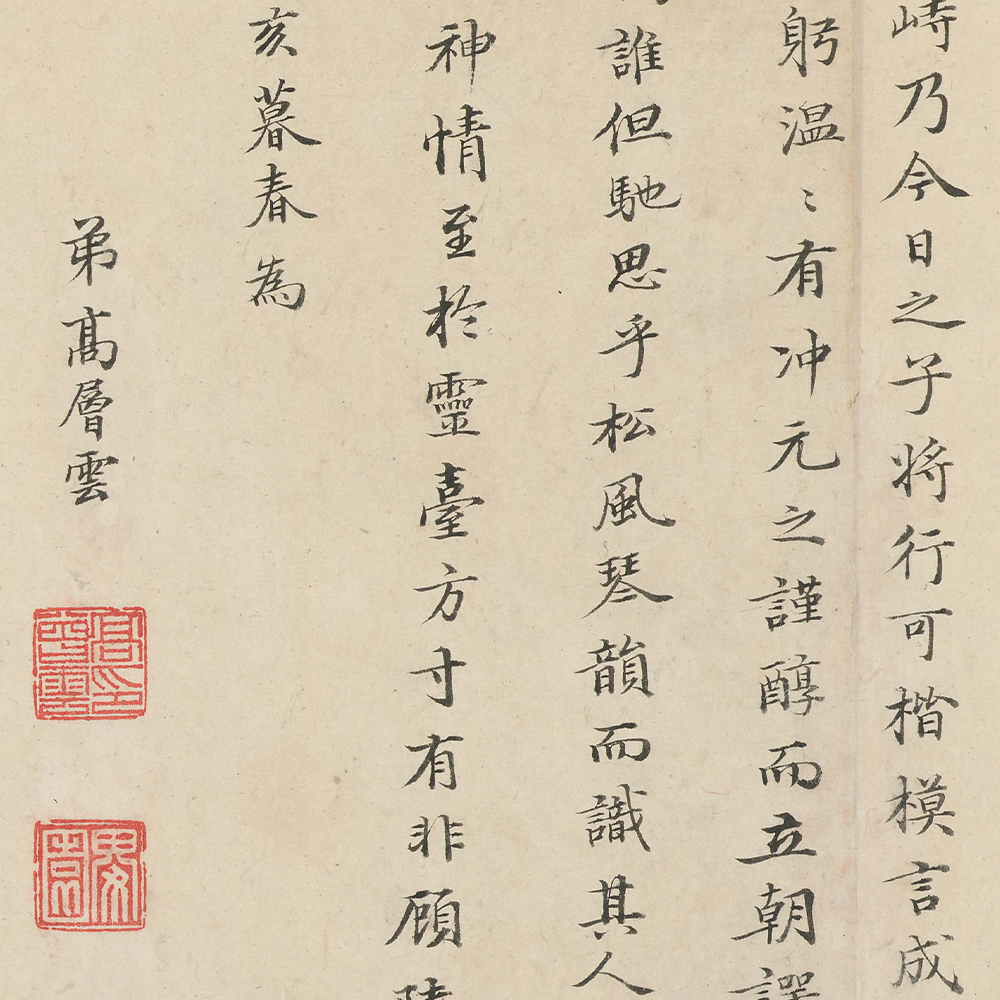 峙乃今日之子將行可楷模言成
躬温〻有冲元之謹醇而立朝
誰但馳思乎松風琴韻而識其人
神情至於靈臺方寸有非顧
亥暮春為
弟高層雲
高層雲印